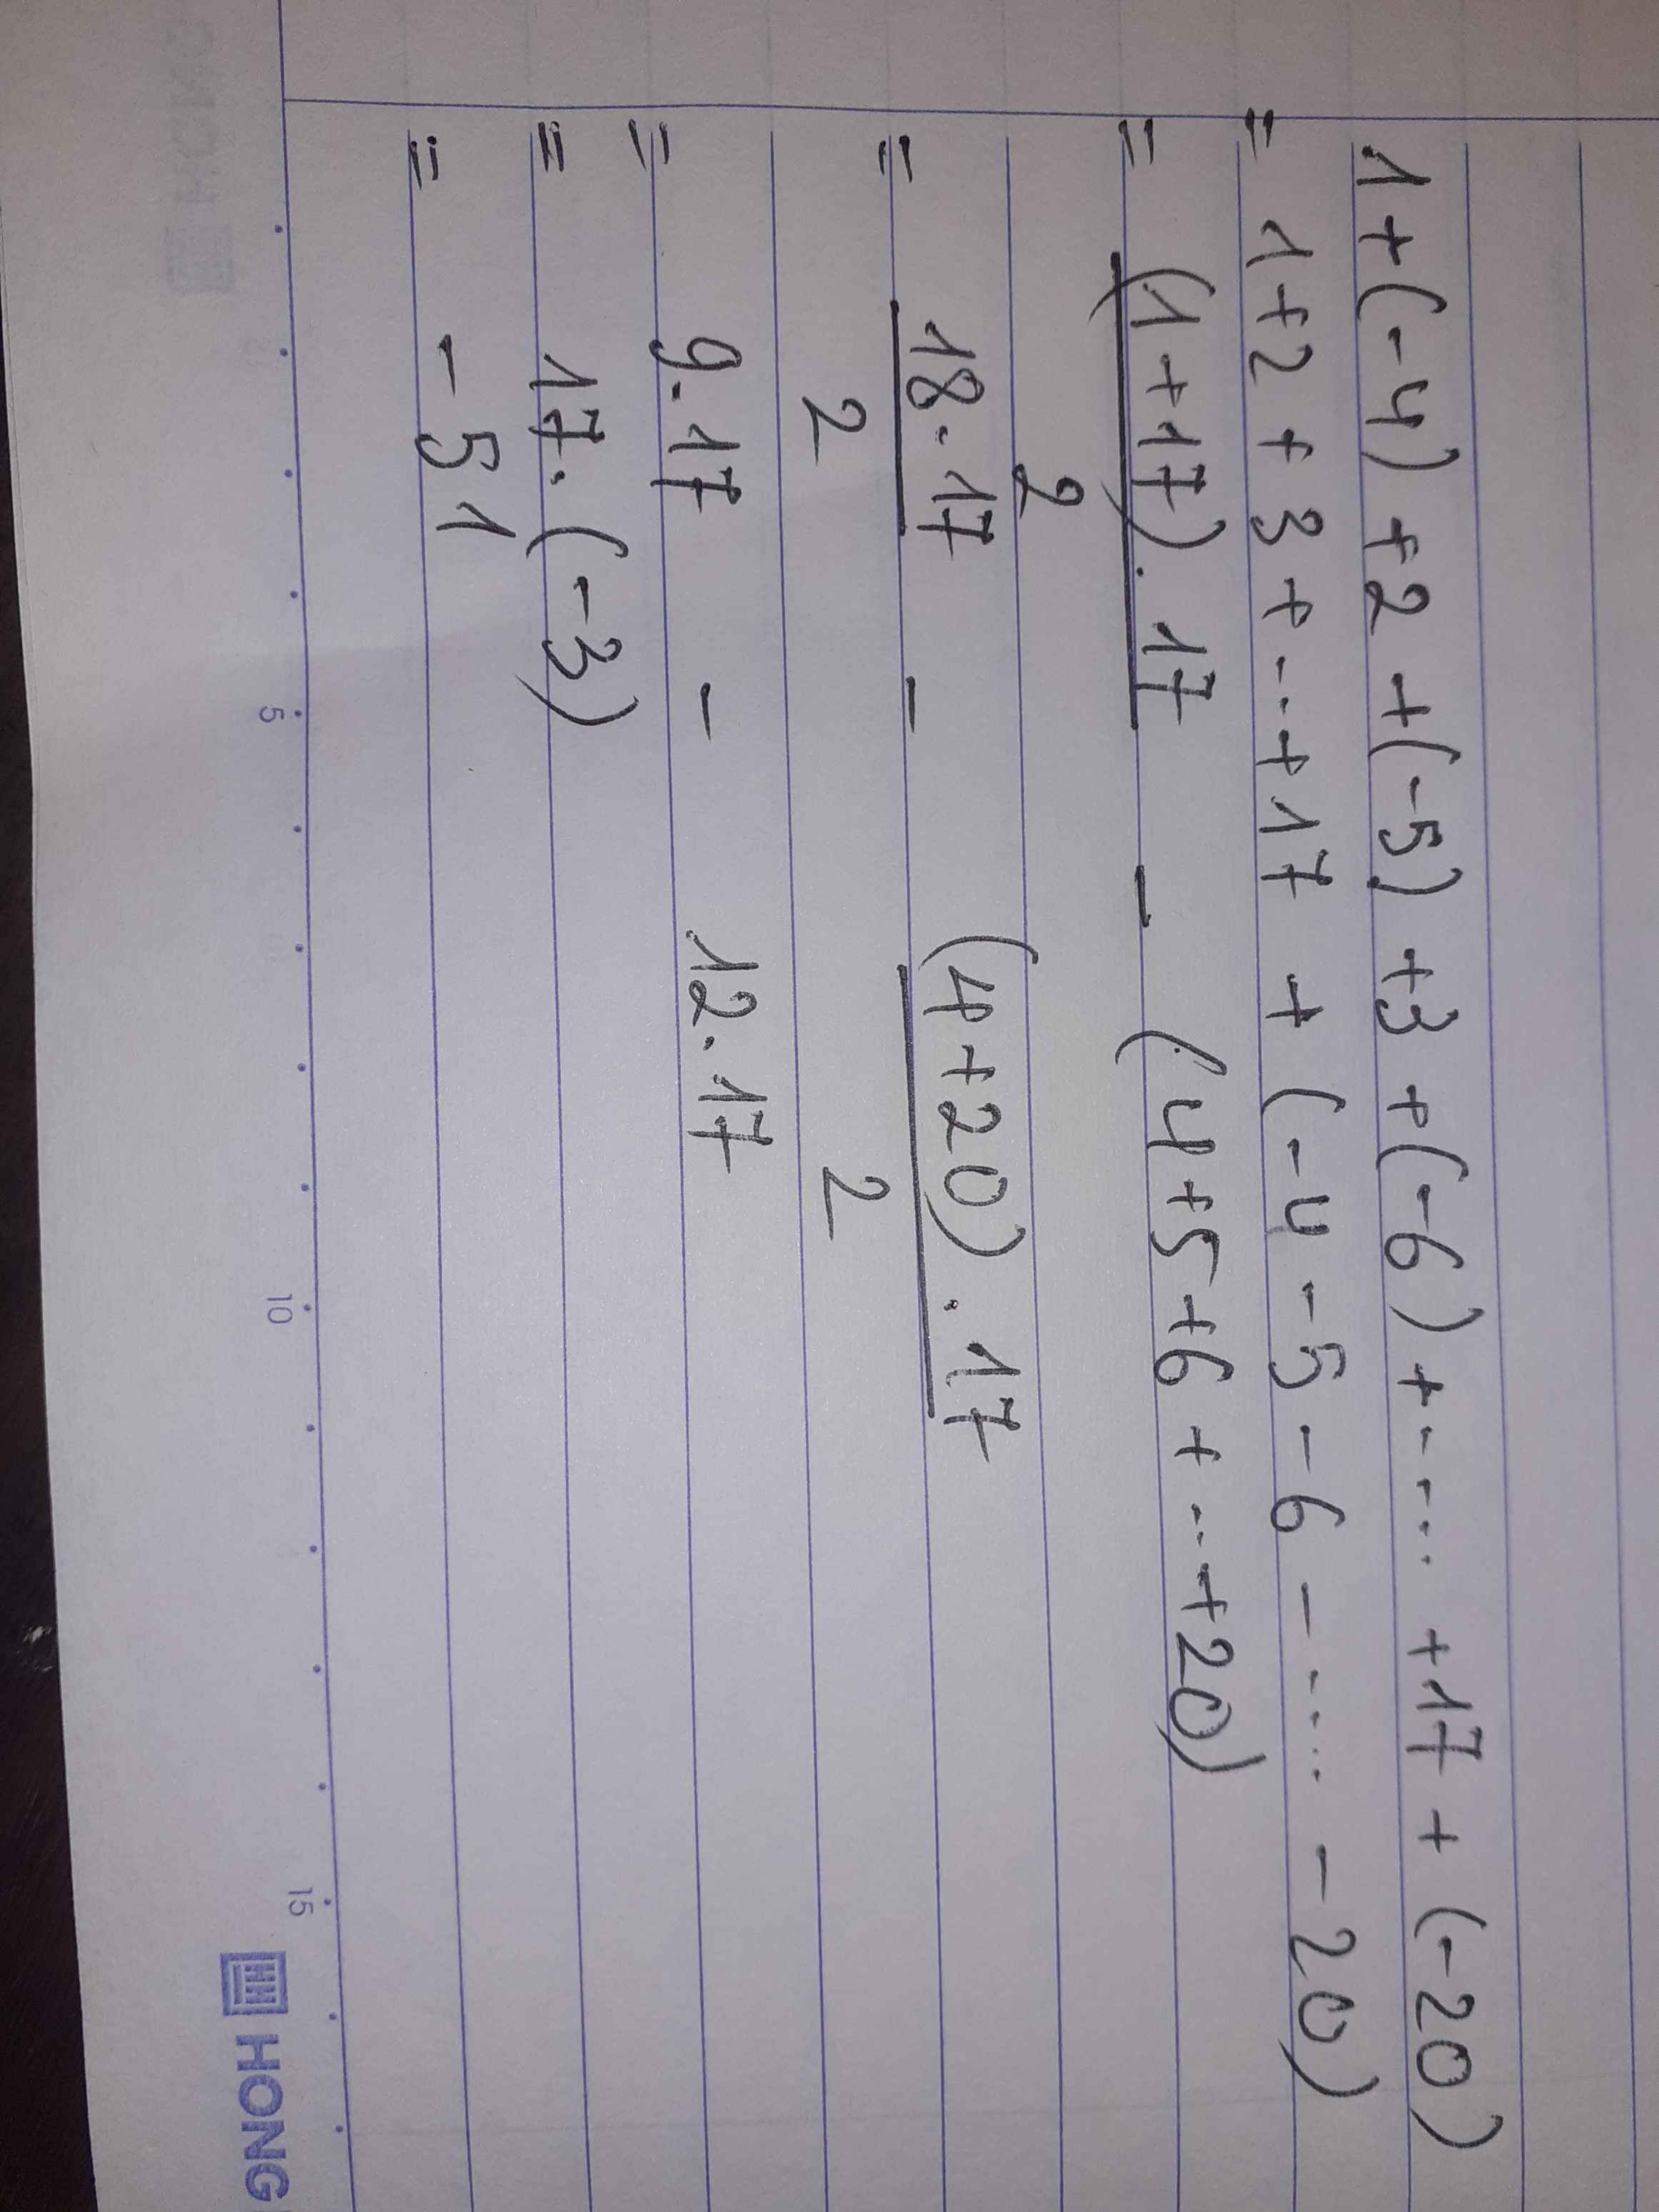 1 + (-4) + 2 + (-5) + 3 + (-6) + .... + 17 + (-20)
= 1 + 2 + 3 + ... + 17 + (-4 - 5 - 6 - .... - 20)
= (1 + 17) . 17 / 2 - (4 + 5 + 6 + ... + 20)
= 18 . 17 / 2 - (4 + 20) . 17 / 2
= 9 . 17 - 12 . 17
= 17 . (-3)
= - 51
5 10 15
HONG